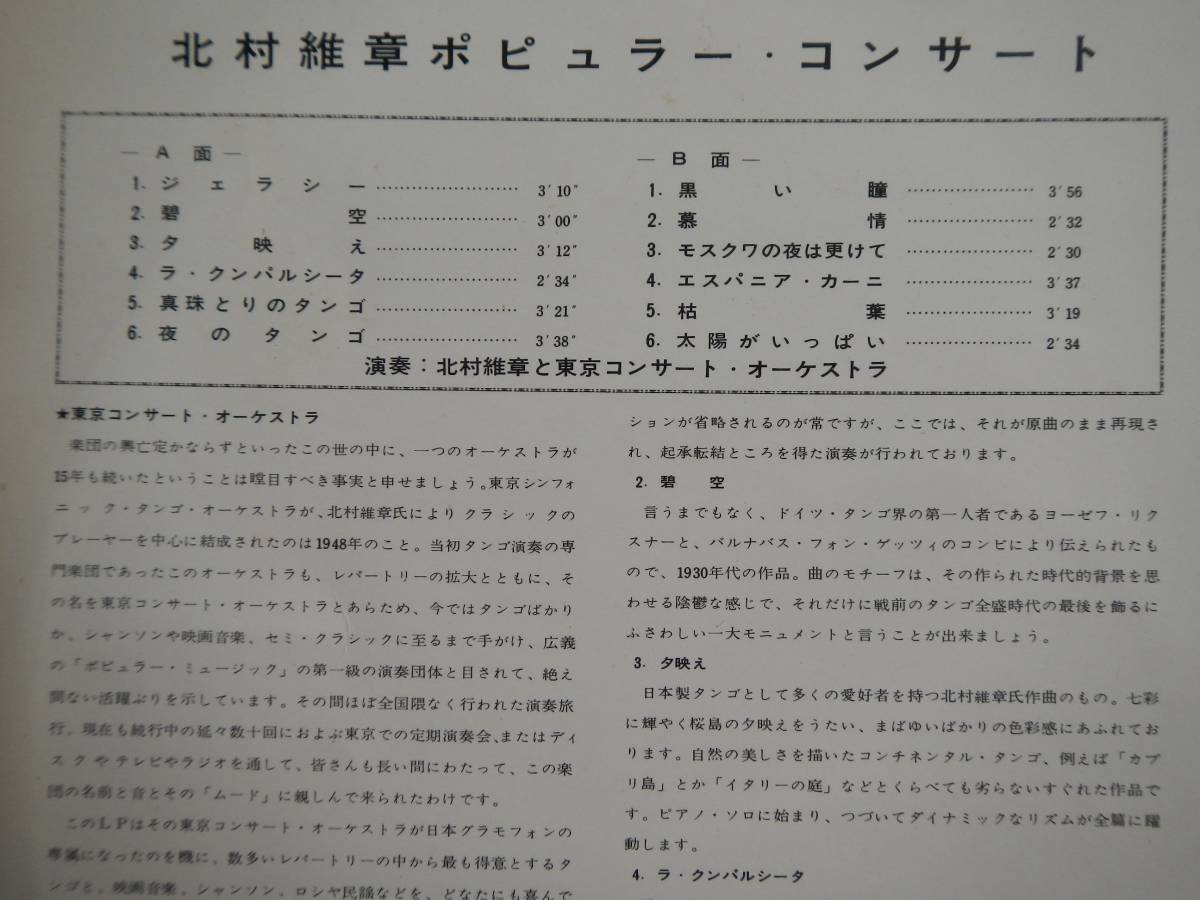 北村維章ポピュラー・コンサート
― A 面 ―
1. ジェラシー ……………………… 3′10″
2. 碧空 ……………………… 3′00″
3. 夕映え ……………………… 3′12″
4. ラ・クンパルシータ ……………………… 2′34″
5. 真珠とりのタンゴ ……………………… 3′21″
6. 夜のタンゴ ……………………… 3′38″
― B 面 ―
1. 黒い瞳 ………………… 3′56
2. 慕情 ………………… 2′32
3. モスクワの夜は更けて ………………… 2′30
4. エスパニア・カーニ ………………… 3′37
5. 枯葉 ………………… 3′19
6. 太陽がいっぱい ………………… 2′34
演奏：北村維章と東京コンサート・オーケストラ
★東京コンサート・オーケストラ
楽団の興亡定かならずといったこの世の中に、一つのオーケストラが
15年も続いたということは瞠目すべき事実と申せましょう。東京シンフォ
ニック・タンゴ・オーケストラが、北村維章氏によりクラシックの
プレーヤーを中心に結成されたのは1948年のこと。当初タンゴ演奏の専
門楽団であったこのオーケストラも、レパートリーの拡大とともに、そ
の名を東京コンサート・オーケストラとあらため、今ではタンゴばかり
か、シャンソンや映画音楽、セミ・クラシックに至るまで手がけ、広義
の「ポピュラー・ミュージック」の第一級の演奏団体と目されて、絶え
間ない活躍ぶりを示しています。その間ほぼ全国隈なく行われた演奏旅
行、現在も続行中の延々数十回におよぶ東京での定期演奏会、またはディ
スクやテレビやラジオを通して、皆さんも長い間にわたって、この楽
団の名前と音とその「ムード」に親しんで来られたわけです。
このLPはその東京コンサート・オーケストラが日本グラモフォンの
専属になったのを機に、数多いレパートリーの中から最も得意とするタ
ンゴと、映画音楽、シャンソン、ロシヤ民謡などを、どなたにも喜んで
ションが省略されるのが常ですが、ここでは、それが原曲のまま再現さ
れ、起承転結ところを得た演奏が行われております。
2. 碧空
言うまでもなく、ドイツ・タンゴ界の第一人者であるヨーゼフ・リク
スナーと、バルナバス・フォン・ゲッツィのコンビにより伝えられたも
ので、1930年代の作品。曲のモチーフは、その作られた時代的背景を思
わせる陰鬱な感じで、それだけに戦前のタンゴ全盛時代の最後を飾るに
ふさわしい一大モニュメントと言うことが出来ましょう。
3. 夕映え
日本製タンゴとして多くの愛好者を持つ北村維章氏作曲のもの。七彩
に輝やく桜島の夕映えをうたい、まばゆいばかりの色彩感にあふれてお
ります。自然の美しさを描いたコンチネンタル・タンゴ、例えば「カプ
リ島」とか「イタリーの庭」などとくらべても劣らないすぐれた作品で
す。ピアノ・ソロに始まり、つづいてダイナミックなリズムが全篇に躍
動します。
4. ラ・クンパルシータ